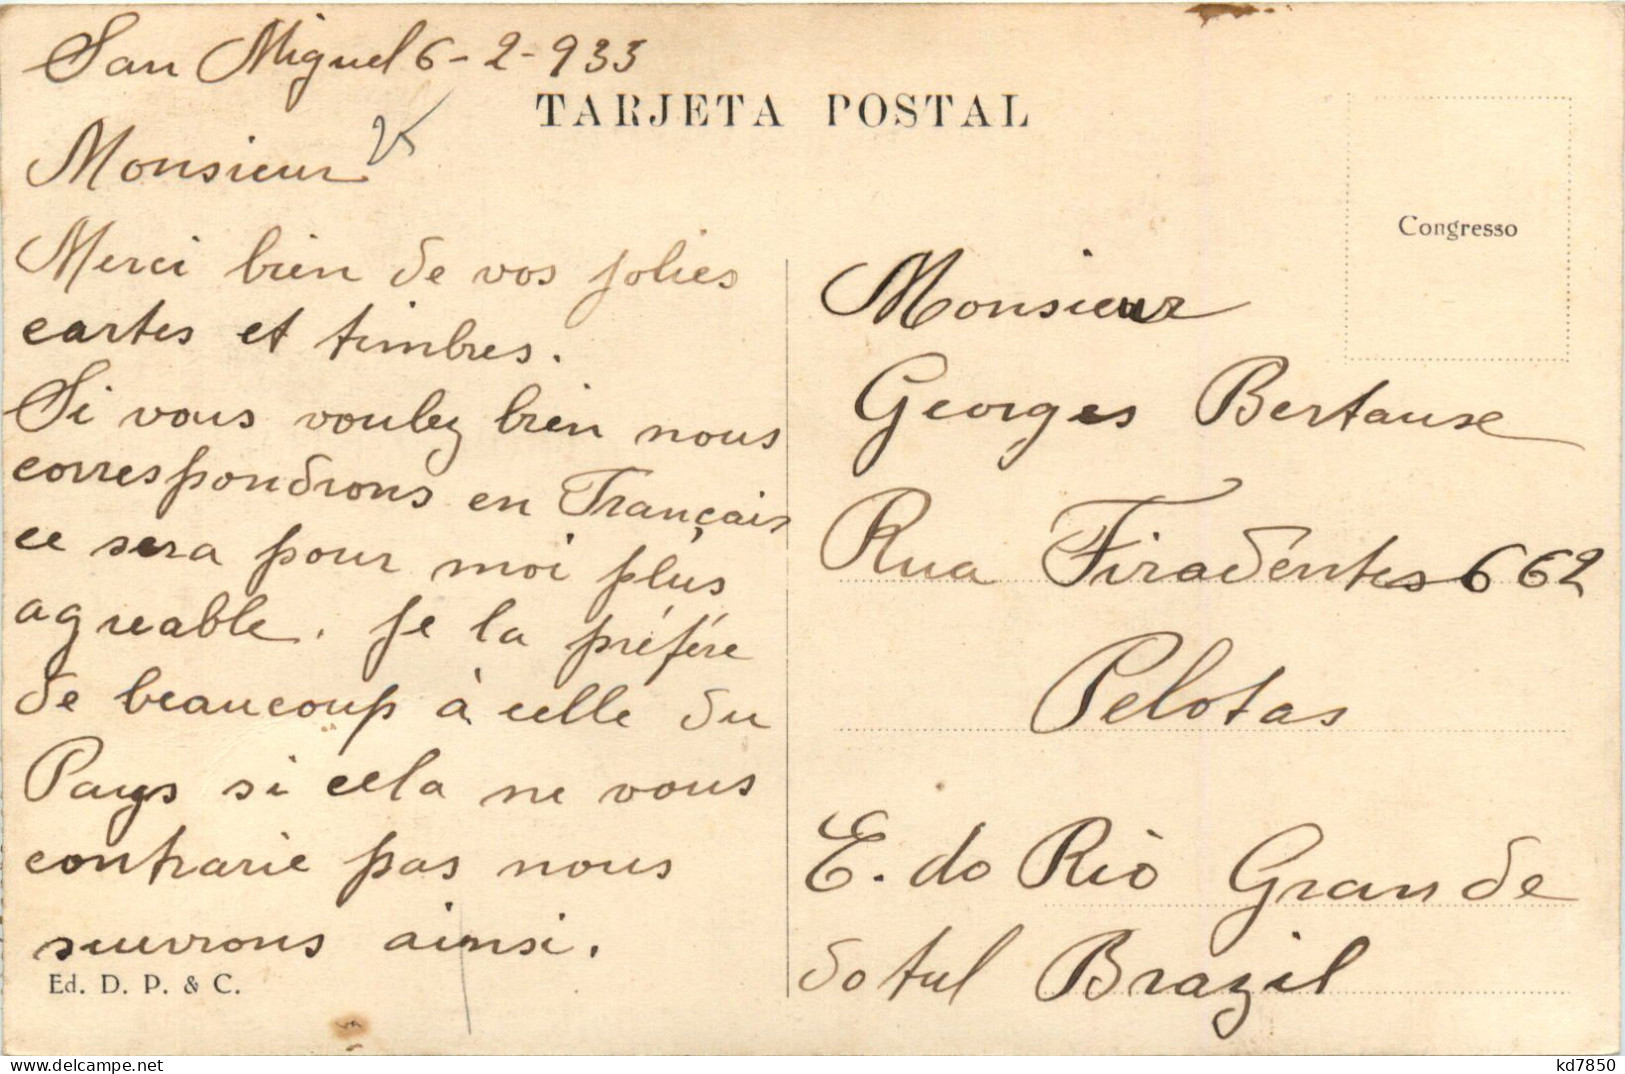 San Miguel 6-2-933
TARJETA POSTAL
Monsieur
Merci bien de vos jolies
cartes et timbres.
Si vous voulez bien nous
correspondrons en Français
ce sera pour moi plus
agreable. Je la préfére
de beaucoup à celle du
Pays si cela ne vous
contrarie pas nous
suivrons ainsi.
Ed. D. P. & C.
Congresso
Monsieur
Georges Bertause
Rua Tiradentes 662
Pelotas
E. do Rio Grande
do tul Brazil
kd7850